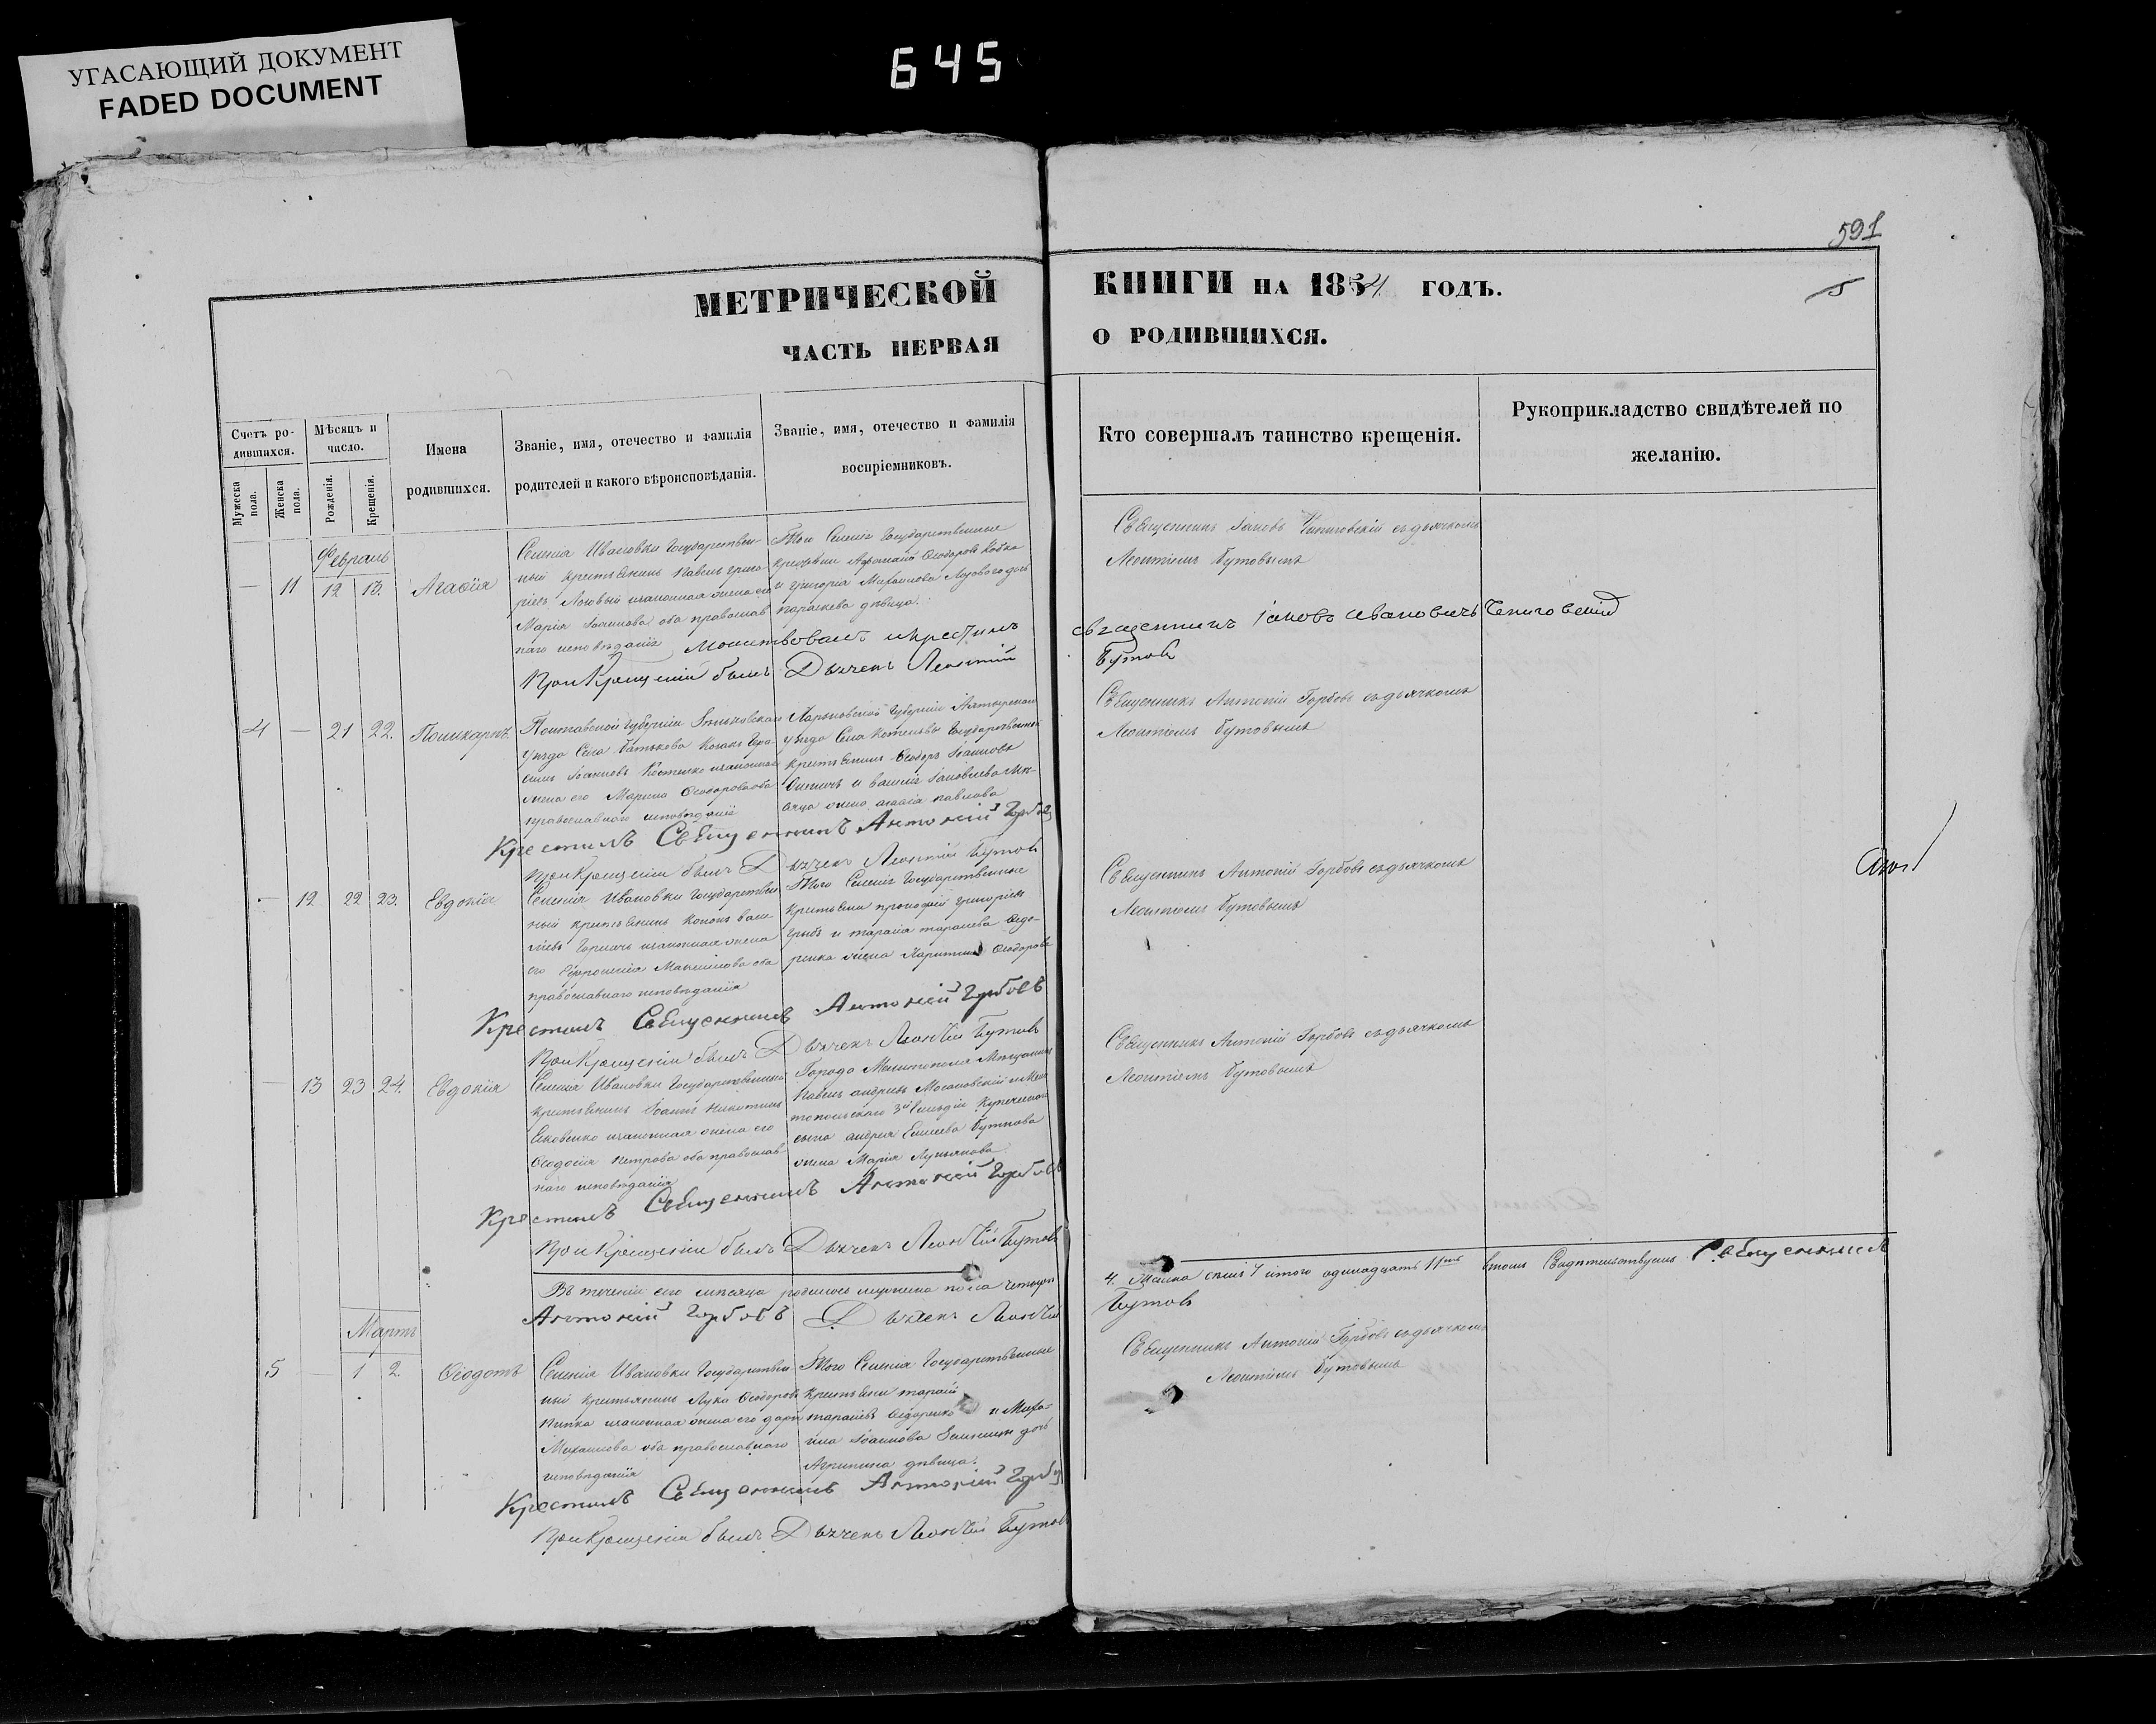 УГАСАЮЩИЙ ДОКУМЕНТ
FADED DOCUMENT
645
591
5
МЕТРИЧЕСКОЙ КНИГИ НА 1854 ГОДЪ.
ЧАСТЬ ПЕРВАЯ О РОДИВШИХСЯ.
Счетъ родившихся.
Мужеска пола.
Женска пола.
Мѣсяцъ и число.
Рожденія.
Крещенія.
Имена родившихся.
Званіе, имя, отечество и фамилія родителей и какого вѣроисповѣданія.
Званіе, имя, отечество и фамилія воспріемниковъ.
Кто совершалъ таинство крещенія.
Рукоприкладство свидѣтелей по желанію.
Февраль
— 11 12 13. Агафія
Селенія Ивановки Государствен-
ный крестьянинъ Павелъ Григо
законная жена его
Марія Іоаннова оба православ
наго исповѣданія
Того Селенія Государственные
крестьяне Афанасій Феодоровъ
и Григорія Михайлова Лозоваго дочь
Параскева дѣвица.
Священникъ Іаковъ Чепиговскій съ дьячкомъ
Леонтіемъ Бутовымъ
молитвовалъ и крестилъ священникъ Іаковъ Ивановичъ Чепиговскій
При Крещеніи былъ Дьячекъ Леонтій Бутовъ
4 — 21 22. Поликарпъ
Полтавской Губерніи Зеньковскаго
уѣзда Села Батькова Козакъ Гера-
симъ Іоанновъ Костенко законная
жена его Марина Феодорова оба
православнаго исповѣданія
Харьковской Губерніи Ахтырскаго
уѣзда Села Котельвы Государственный
крестьянинъ Феодоръ Іоанновъ
жена Агафія Павлова
Священникъ Антоній Горбовъ съ дьячкомъ
Леонтіемъ Бутовымъ
Крестилъ Священникъ Антоній Горбовъ
При Крещеніи былъ Дьячекъ Леонтій Бутовъ
— 12 22 23. Евдокія
Селенія Ивановки Государствен
ный крестьянинъ Кононъ Васи
ліевъ законная жена
его Ефросинія Максимова оба
православнаго исповѣданія
Того Селенія Государственные
крестьяне Прокофій Григорьевъ
и Тарасія Тарасіева Федо-
ренка жена Харитина Феодорова
Священникъ Антоній Горбовъ съ дьячкомъ
Леонтіемъ Бутовымъ
Крестилъ Священникъ Антоній Горбовъ
При Крещеніи былъ Дьячекъ Леонтій Бутовъ
— 13 23 24. Евдокія
Селенія Ивановки Государственный
крестьянинъ Іоаннъ Никитинъ
законная жена его
Феодосія Петрова оба православ
наго исповѣданія
Города Мелитополя Мѣщанинъ
Павелъ Андреевъ и Мели
топольскаго 3й Гильдіи Купеческаго
сына Андрея Елисеева
жена Марія Лукьянова
Священникъ Антоній Горбовъ съ дьячкомъ
Леонтіемъ Бутовымъ
Крестилъ Священникъ Антоній Горбовъ
При Крещеніи былъ Дьячекъ Леонтій Бутовъ
Въ теченіи сего мѣсяца родилось мужеска пола четыре
4. итого одинадцать 11ть въ томъ Свидѣтельствуемъ Священникъ
Антоній Горбовъ Дьячекъ Леонтій Бутовъ
Мартъ
5 — 1 2. Феодотъ
Селенія Ивановки Государствен-
ный крестьянинъ Лука Феодоровъ
законная жена его Дарія
Михаилова оба православнаго
исповѣданія
Того Селенія Государственные
крестьяне Тарасій
Тарасіевъ Федоренко и Миха-
ила Іоаннова дочь
Агрипина дѣвица.
Священникъ Антоній Горбовъ съ дьячкомъ
Леонтіемъ Бутовымъ
Крестилъ Священникъ Антоній Горбовъ
При Крещеніи былъ Дьячекъ Леонтій Бутовъ